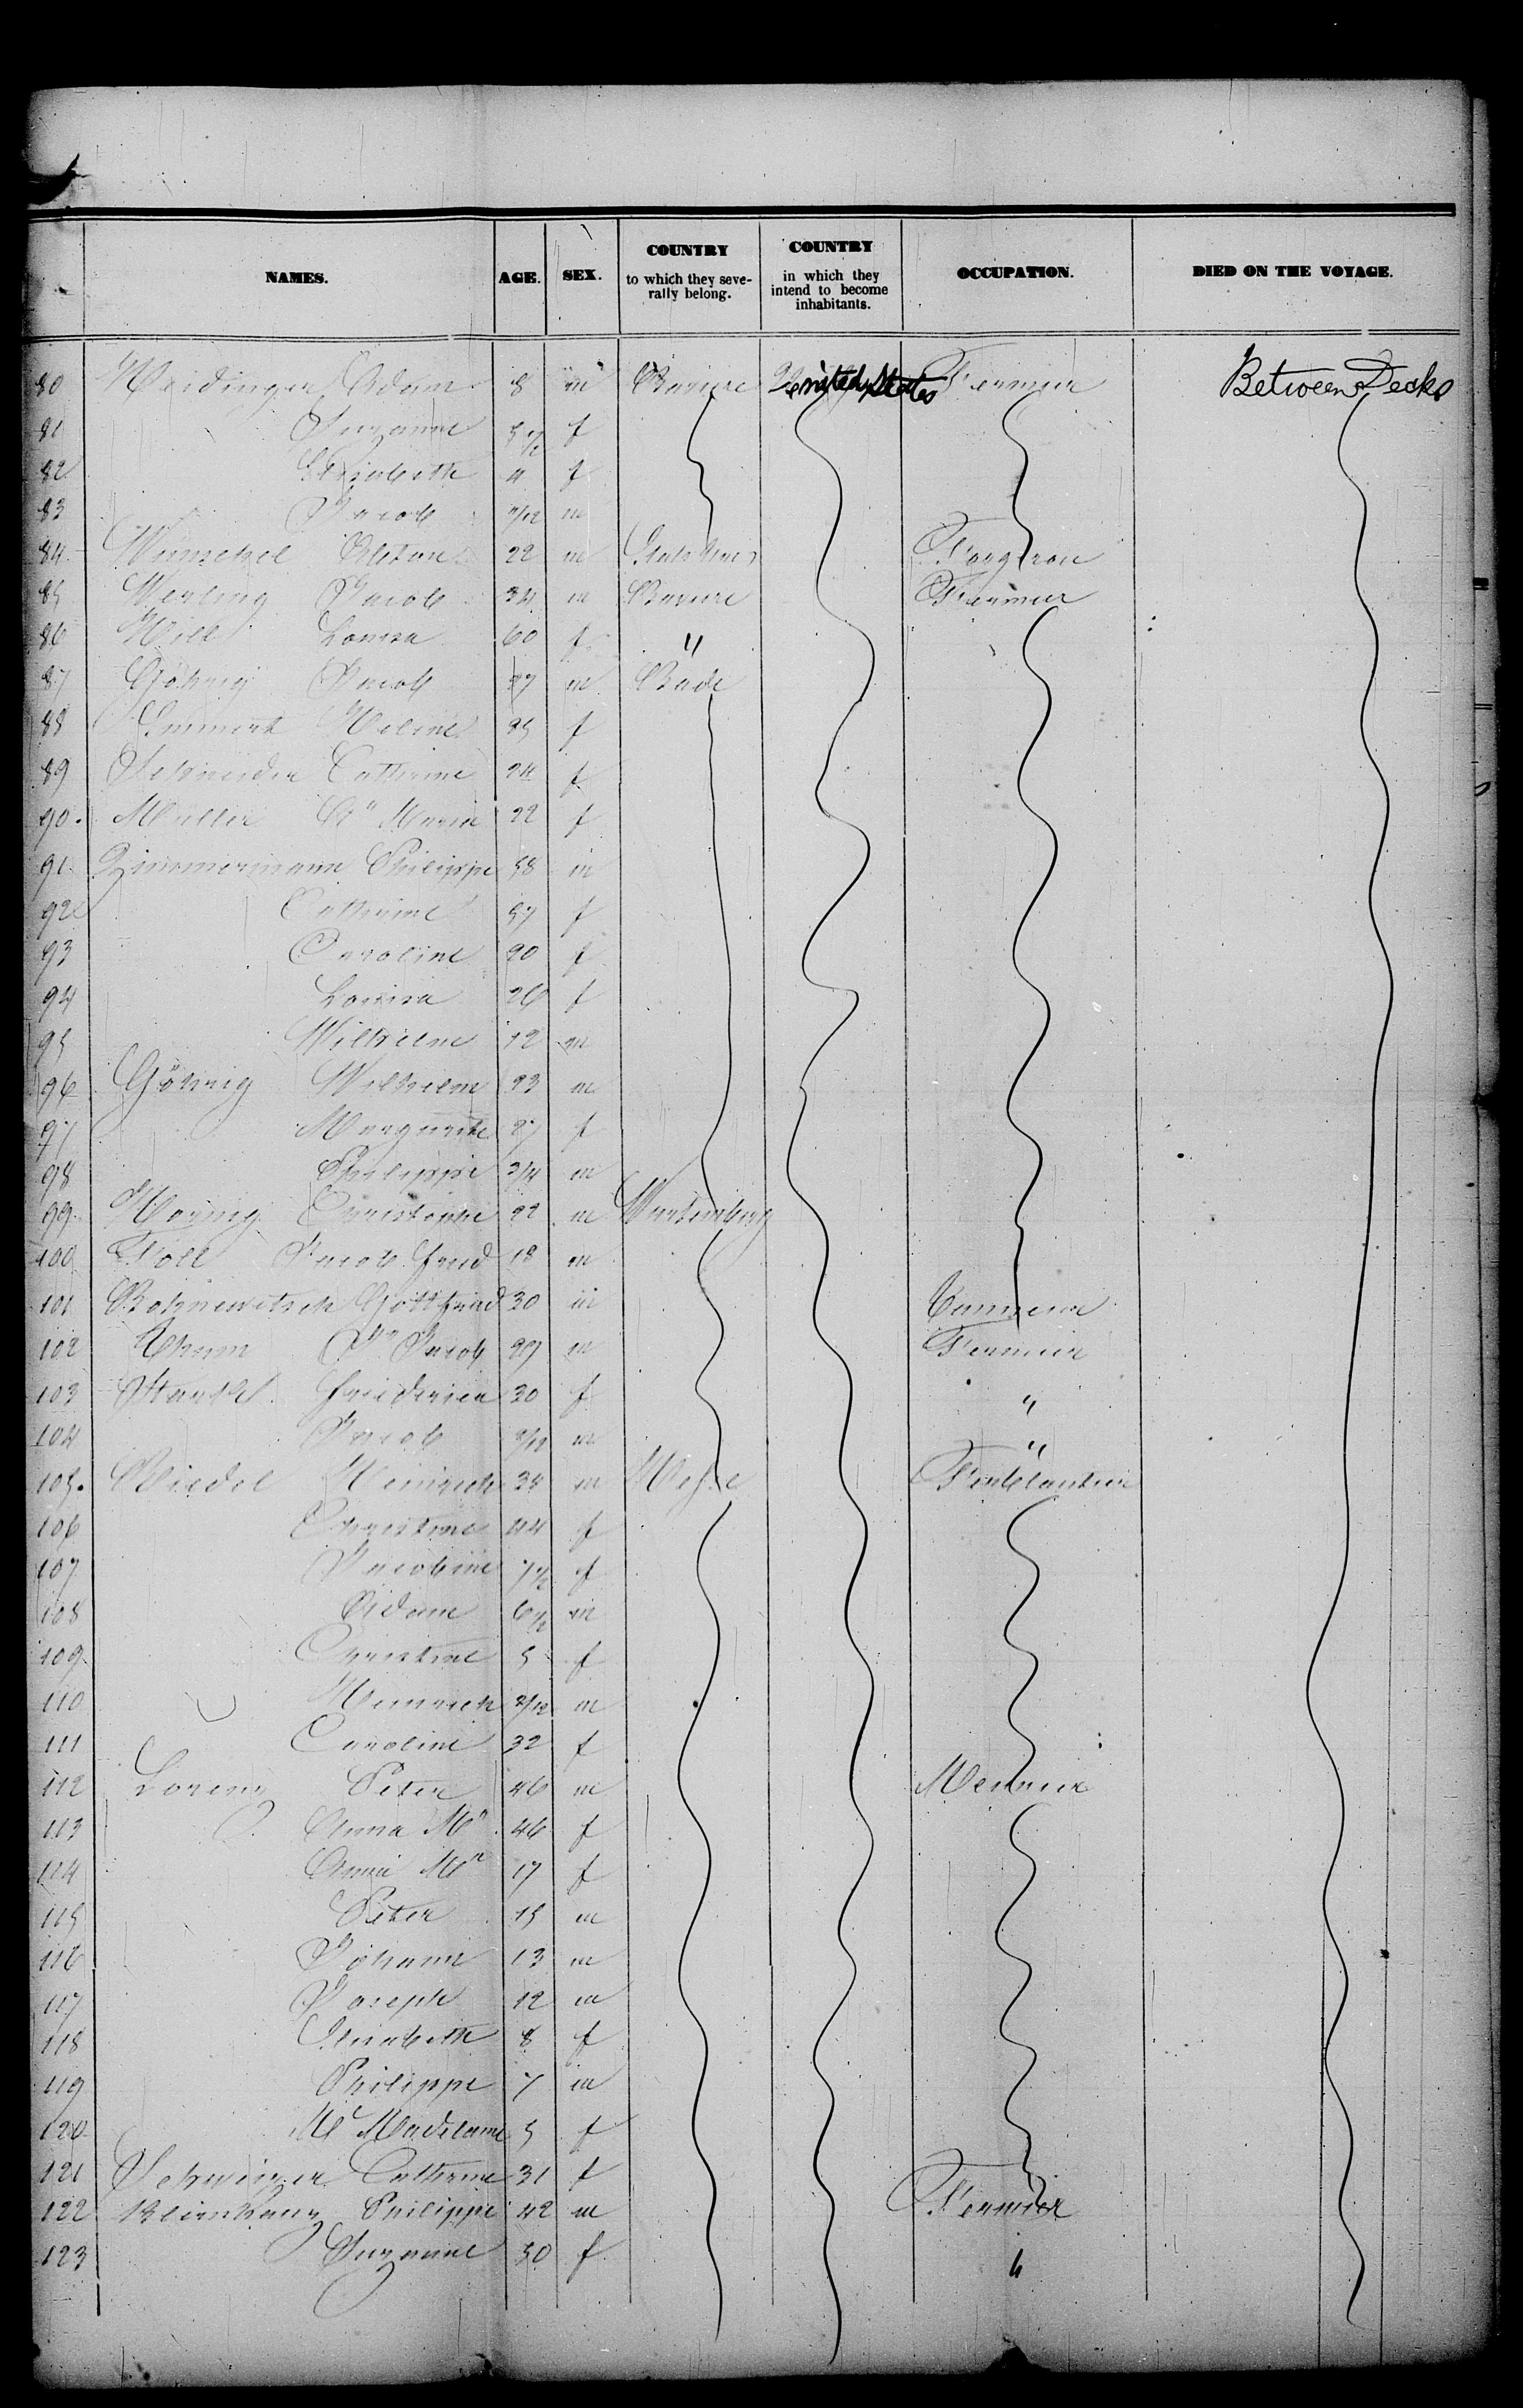 NAMES. AGE. SEX. COUNTRY to which they seve-rally belong. COUNTRY in which they intend to become inhabitants. OCCUPATION. DIED ON THE VOYAGE.
80 Adam 8 m Baviere United States Fermier Between Decks
81 Suzanne 5 1/2 f
82 Elisabeth 4 f
83 Jacob m
84 22 m Forgeron
85 Werling Jacob 34 m Baviere Fermier
86 Hill Louisa 60 f "
87 Göhrig Jacob 27 m Bade
88 Emmert Helene 25 f
89 Schneider Catherine 24 f
90. Muller Aª Maria 22 f
91 Zimmermann Philippe 58 m
92 Catherine 57 f
93 Caroline 20 f
94 Louisa 26 f
95 Wilhelm 12 m
96 Göhrig Wilhelm 23 m
97 Marguerite 27 f
98 Philippe 3/4 m
99 Christophe 22 m Wurtemberg
100 Jacob Fried 18 m
101 Gottfried 30 m
102 Jn Jacob 29 m Fermier
103 Friederica 30 f "
104 Jacob m "
105. Heinrich m Hesse Ferblantier
106 Christine 44 f
107 Jacobine 7 1/2 f
108 Adam 6 1/2 m
109 Christine 5 f
110 Heinrich m
111 Caroline 32 f
112 Lorenz Peter 46 m
113 Anna Mª 46 f
114 Anna Mª 17 f
115 Peter 15 m
116 Johann 13 m
117 Joseph 12 m
118 Elisabeth 8 f
119 Philippe 7 m
120 5 f
121 Catherine 31 f
122 Philippe 42 m Fermier
123 Suzanne 50 f "